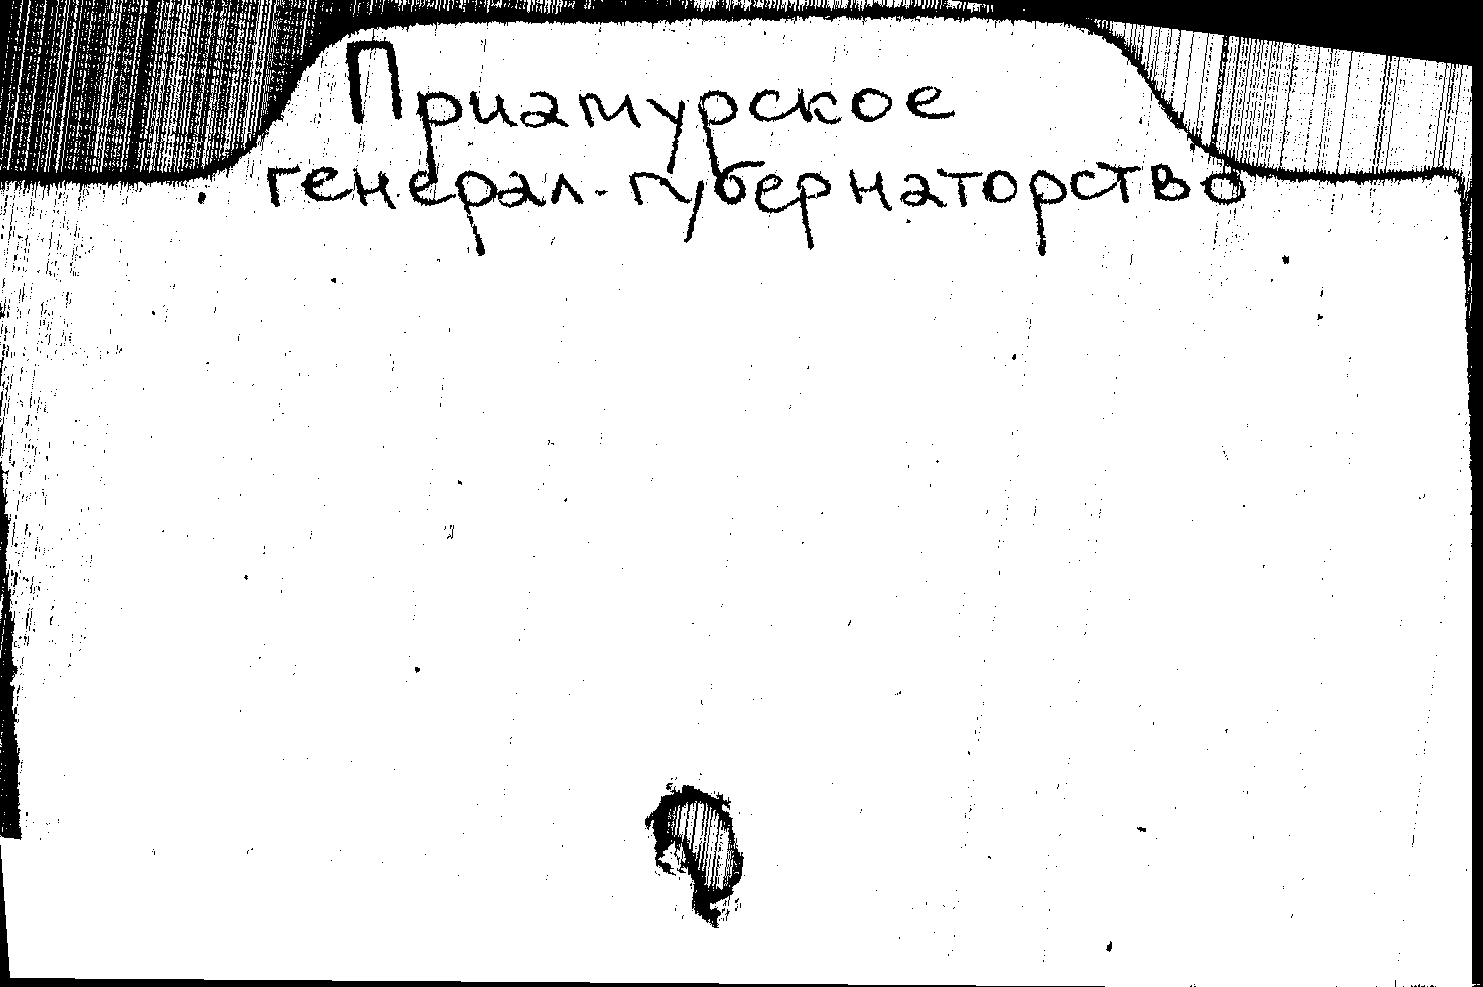 Приамурское
генерал-губернаторство